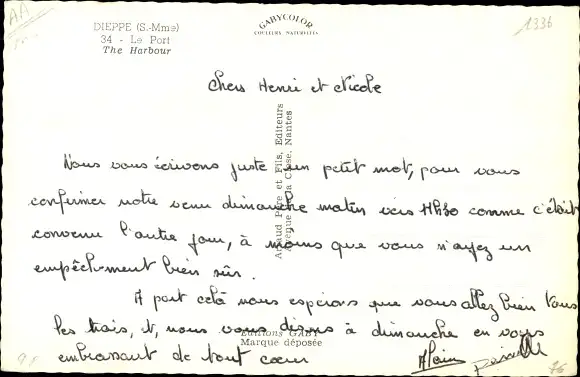 AA
DIEPPE (S.-Mme)
34 - Le Port
The Harbour
GABYCOLOR
COULEURS NATURELLES
1336
Chers Henri et Nicole
Nous vous écrivons juste un petit mot, pour vous
confirmer notre venu dimanche matin vers comme c'était
convenu l'autre jour, à moins que vous n'ayez un
empêchement bien sûr.
A part celà nous espérons que vous allez bien tous
les trois, et, nous vous disons à dimanche en vous
embrassant de tout cœur
Alain
Artaud Père et Fils, Editeurs
Nantes
Editions GABY
Marque déposée